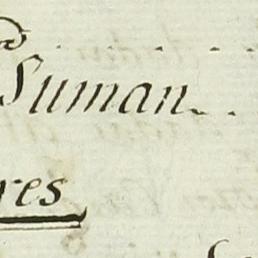 Suman..
res